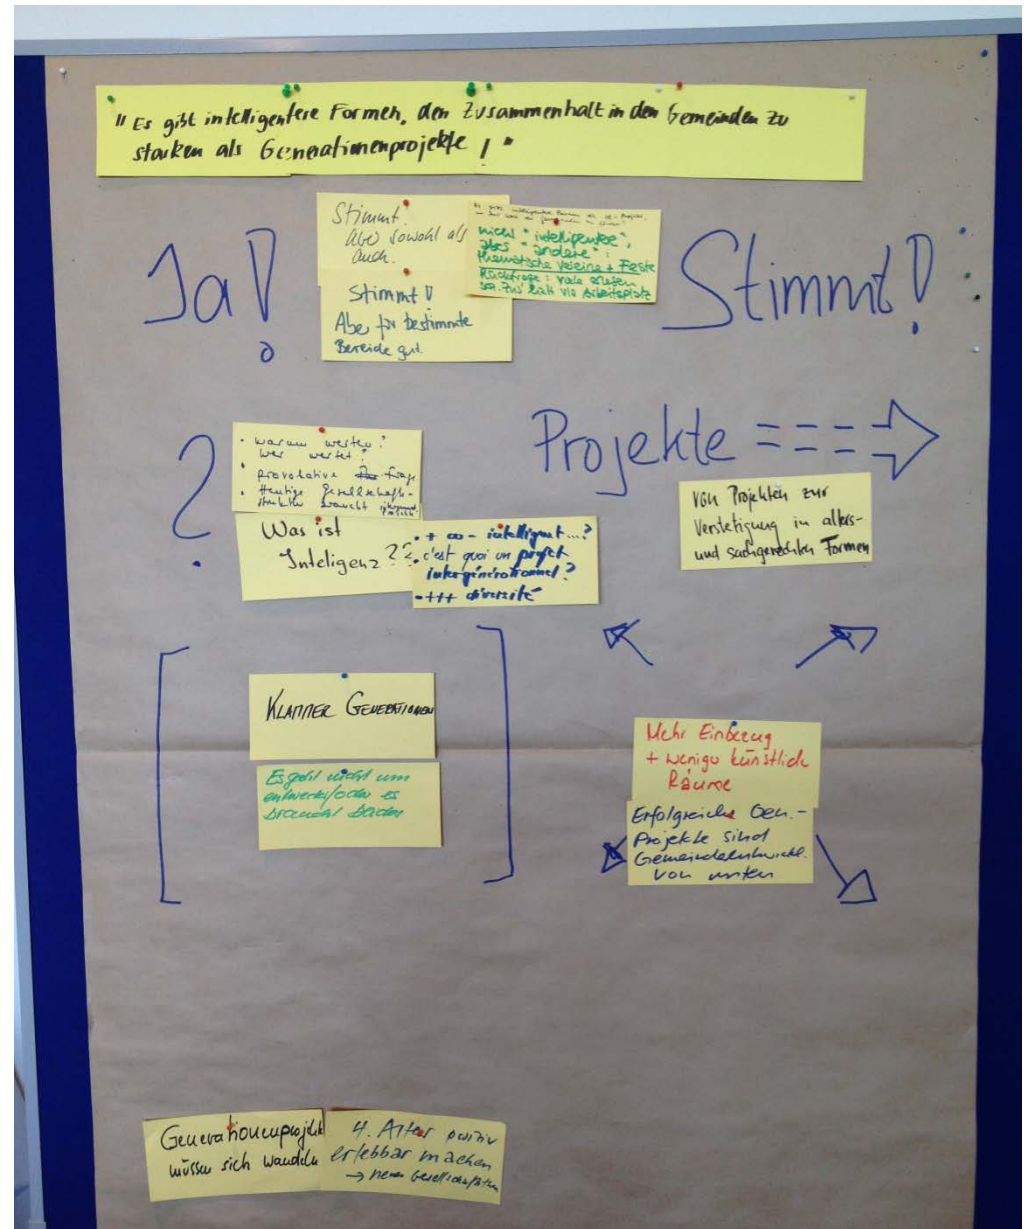 "Es gibt intelligentere Formen, den Zusammenhalt in den Gemeinden zu
starken als Generationenprojekte!"
Ja!
Stimmt!
Aber sowohl als
auch.
Stimmt!
Aber für bestimmte
Bereiche gut.
nicht "intelligentere",
aber "andere":
thematische Vereine + Feste
Rückfrage: viele erleben
soz. Zus'halt via Arbeitsplatz
Stimmt!
?
• warum werten?
wer wertet?
• provokative Frage
• Heutige Gesellschafts-
struktur braucht
Was ist
Inteligenz??
• + co - intelligent...?
• c'est quoi un projet
intergénérationnel?
• +++ diversité
Projekte ====>
von Projekten zur
Verstetigung in alters-
und sachgerechten Formen
KLAMMER GENERATIONEN
Es geht nicht um
entweder/oder es
braucht beides
Mehr Einbezug
+ weniger künstlich
Räume
Erfolgreiche Gen.-
Projekte sind
Gemeindeentwickl.
von unten
Generationenprojekte
müssen sich wandeln
4. Alter positiv
erlebbar machen
→ neue